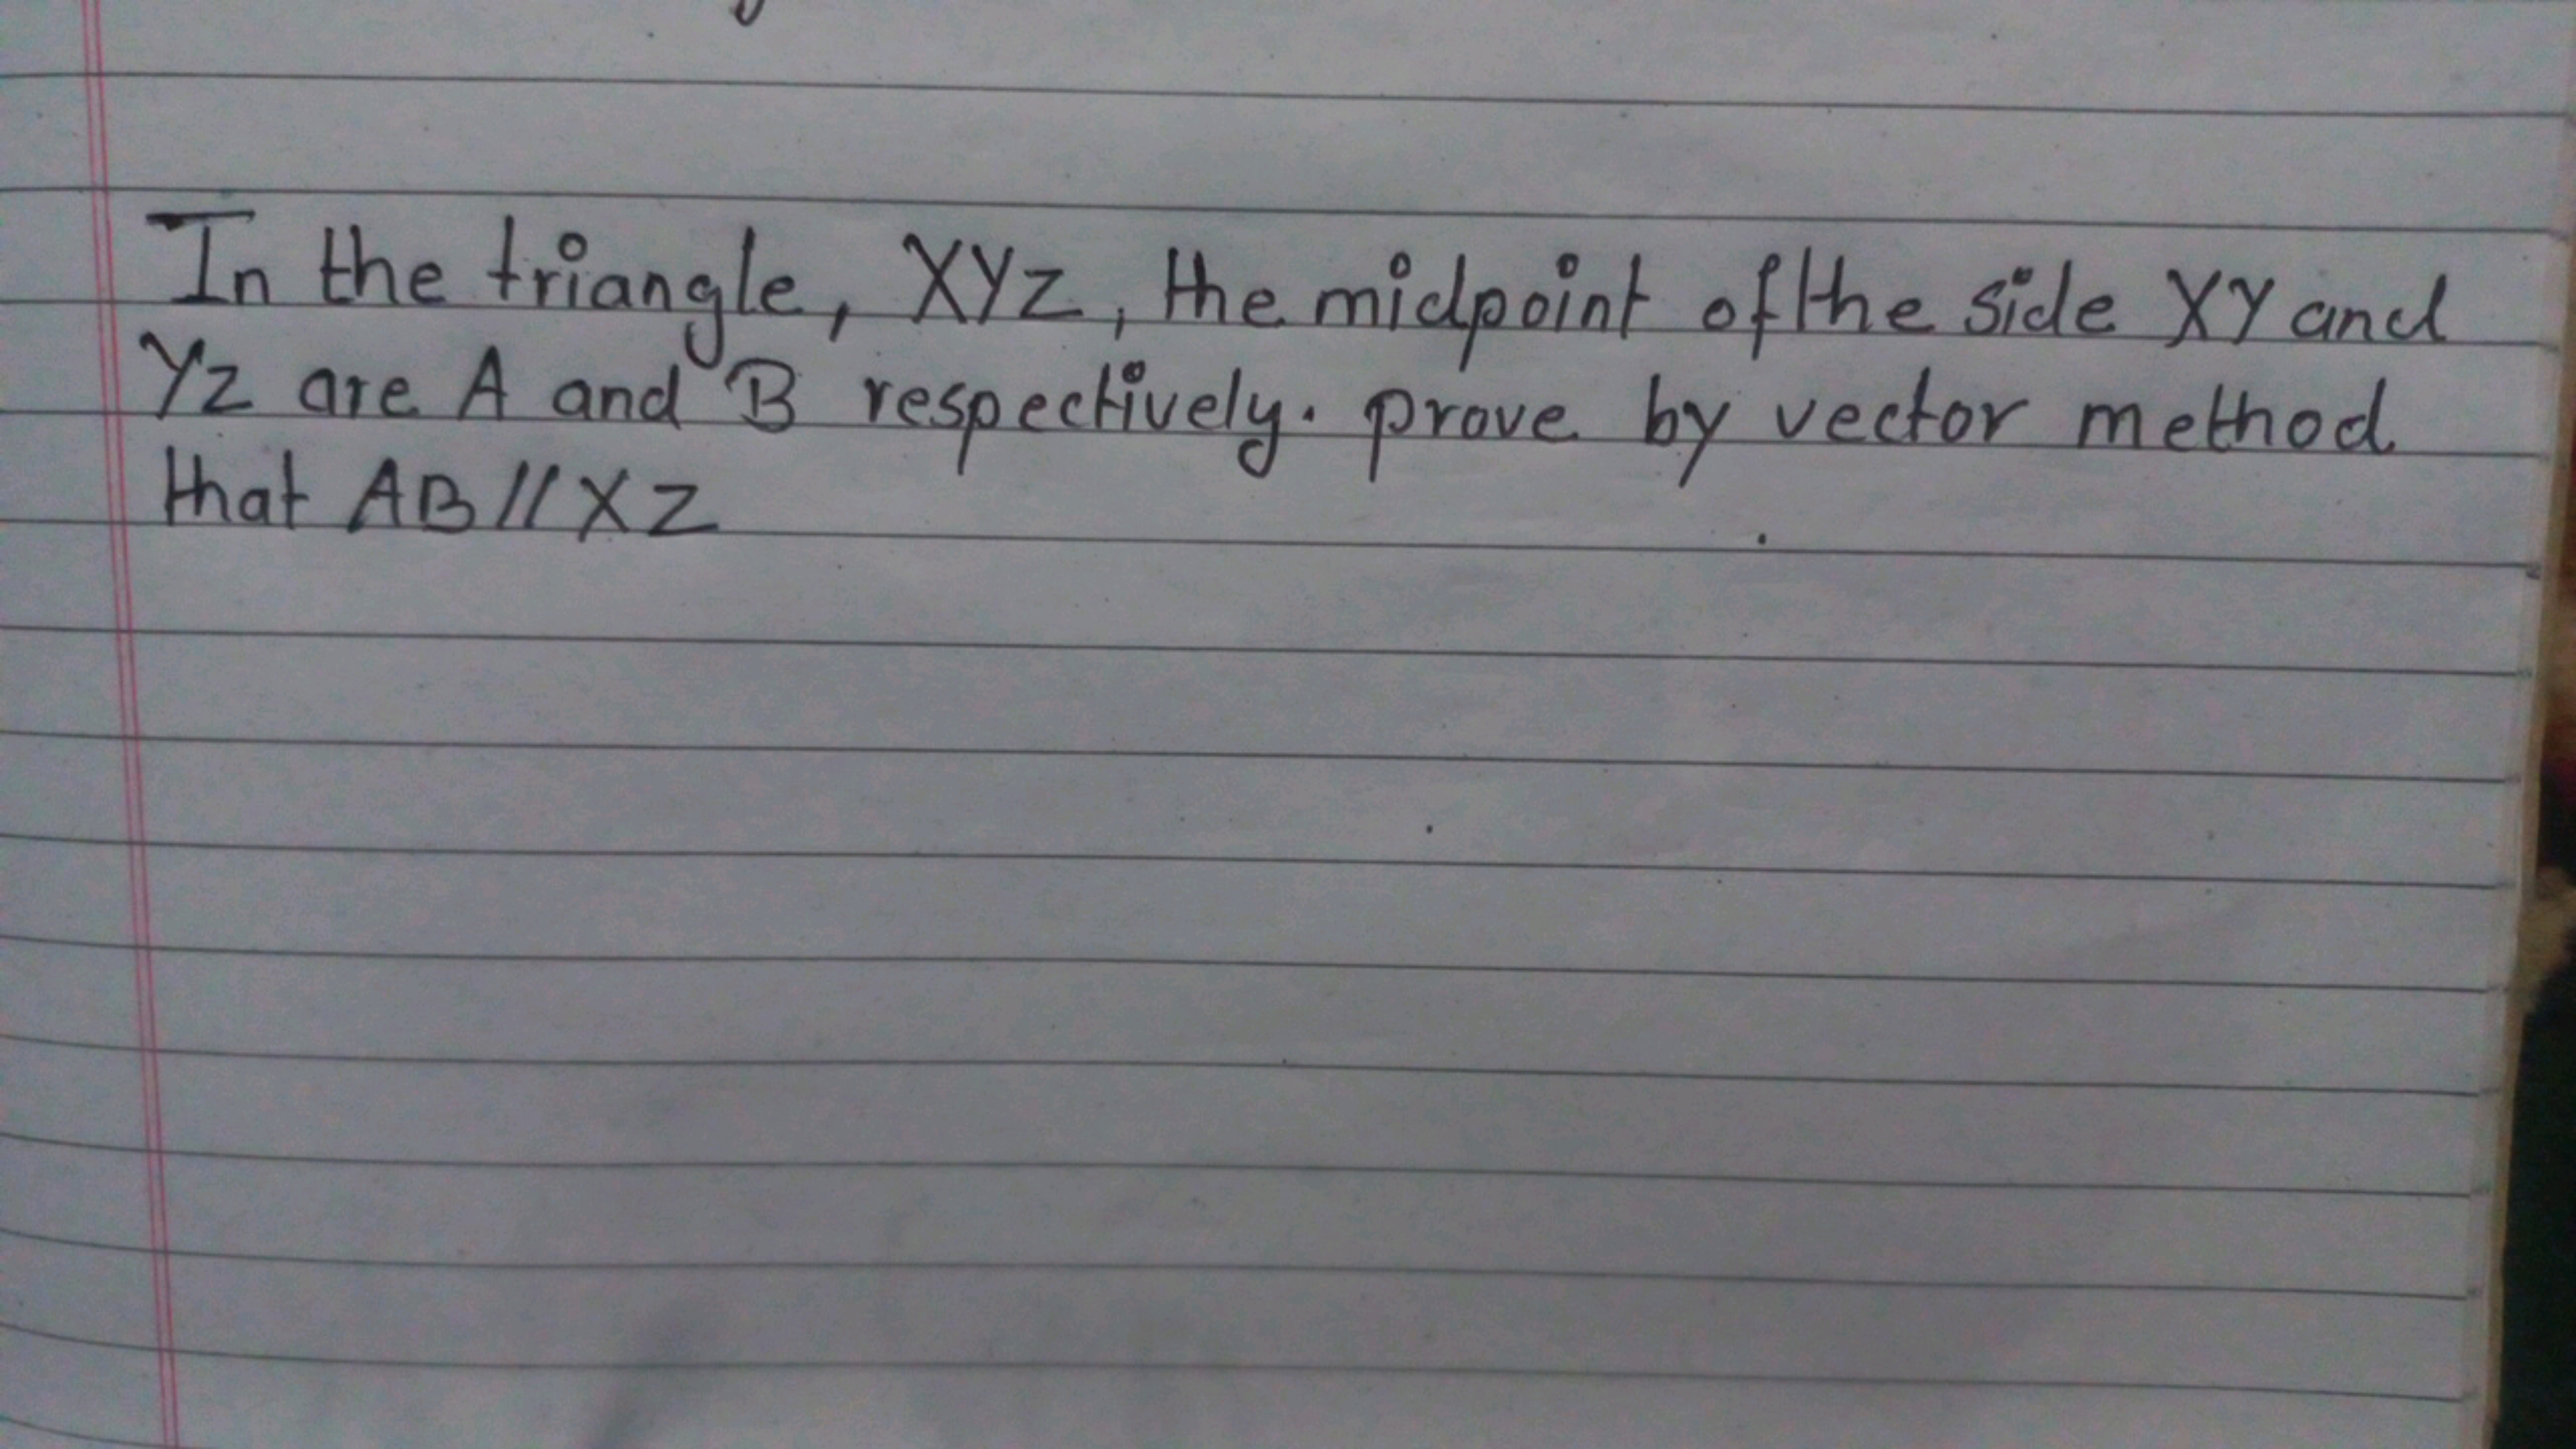 In the triangle, XYZ, the midpoint of the side XY and
YZ are A and B respectively. prove by vector method
that AB // XZ